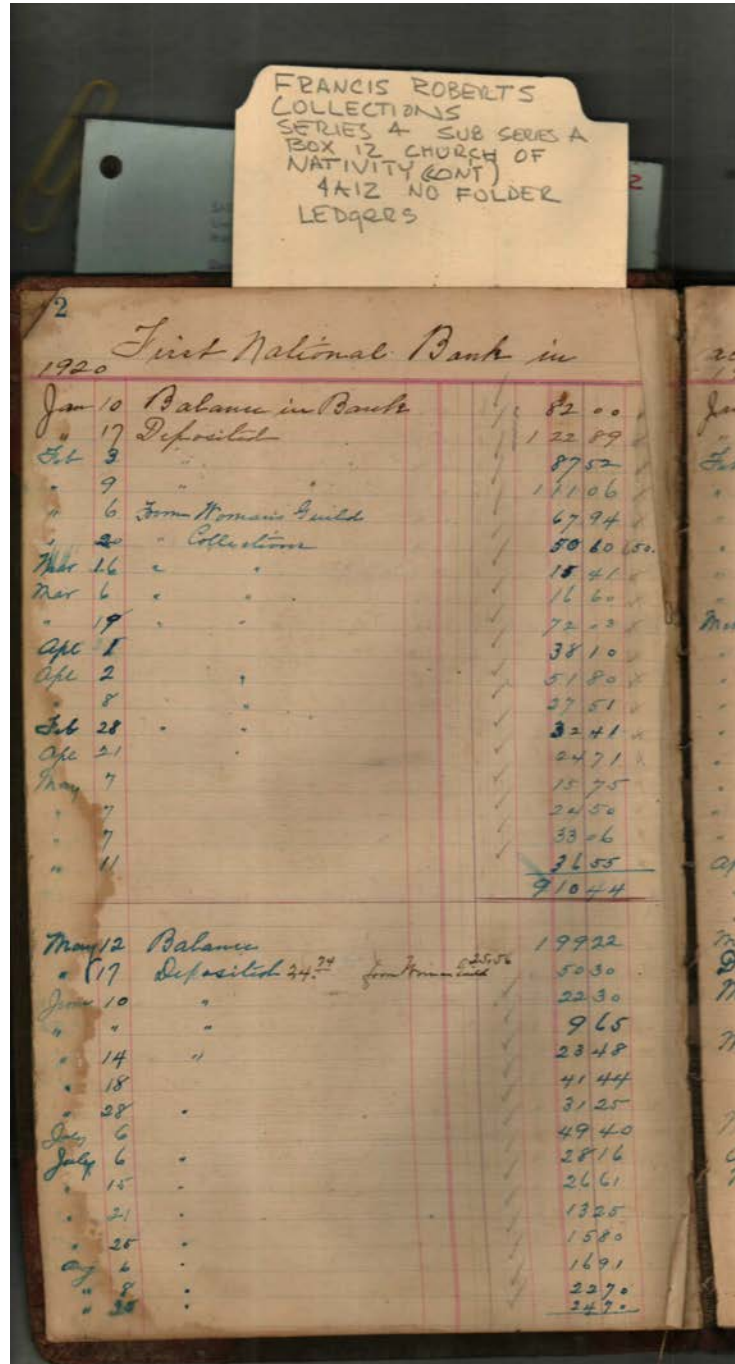 FRANCIS ROBERTS
COLLECTIONS
SERIES 4 SUB SERIES A
BOX 12 CHURCH OF
NATIVITY (CONT)
4A12 NO FOLDER
LEDGERS
2
First National Bank in
1920
Jan 10 Balance in Bank 82 00
" 17 Deposited 122 89
Feb 3 " " 87 52
" 9 " " 111 06
" 6 From Woman's Guild 67 94
" 20 " Collections 50 60
Mar 16 " " 15 41
Mar 6 " " 16 60
" 19 " " 72 03
Apl 1 38 10
Apl 2 " 51 80
" 8 " 27 51
Feb 28 " " 32 41
Apl 21 " 24 71
May 7 15 75
" 7 24 50
" 7 33 06
" 11 36 55
910 44
May 12 Balance 199 22
" 17 Deposited 24.74 from Womans Guild 25.56 50 30
June 10 " 22 30
" " " 9 65
" 14 " 23 48
" 18 41 44
" 28 " 31 25
July 6 49 40
July 6 " 28 16
" 15 " 26 61
" 21 " 13 25
" 25 " 15 80
Aug 6 " 16 91
" 8 " 22 70
" " 24 70